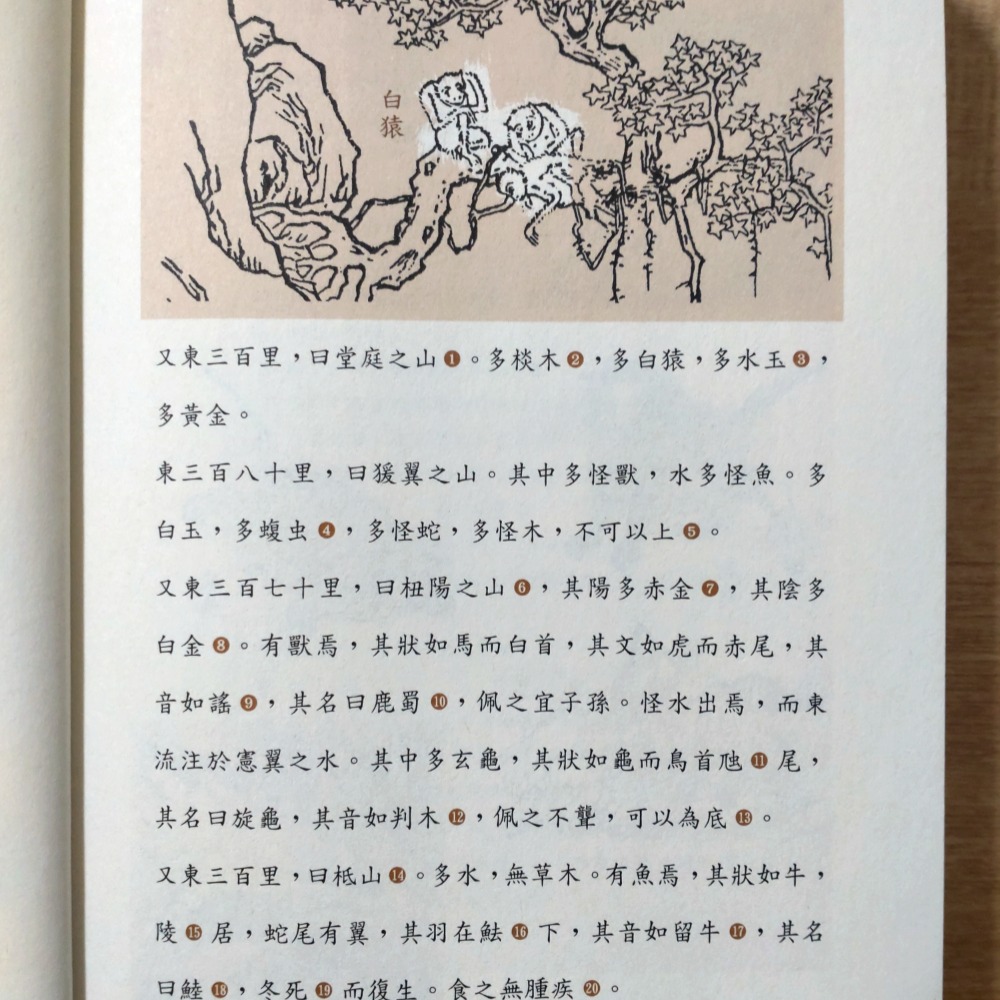 白猿
又東三百里，曰堂庭之山❶。多棪木❷，多白猿，多水玉❸，
多黃金。
東三百八十里，曰猨翼之山。其中多怪獸，水多怪魚。多
白玉，多蝮虫❹，多怪蛇，多怪木，不可以上❺。
又東三百七十里，曰杻陽之山❻，其陽多赤金❼，其陰多
白金❽。有獸焉，其狀如馬而白首，其文如虎而赤尾，其
音如謠❾，其名曰鹿蜀❿，佩之宜子孫。怪水出焉，而東
流注於憲翼之水。其中多玄龜，其狀如龜而鳥首虺⓫尾，
其名曰旋龜，其音如判木⓬，佩之不聾，可以為底⓭。
又東三百里，曰柢山⓮。多水，無草木。有魚焉，其狀如牛，
陵⓯居，蛇尾有翼，其羽在魼⓰下，其音如留牛⓱，其名
曰鯥⓲，冬死⓳而復生。食之無腫疾⓴。